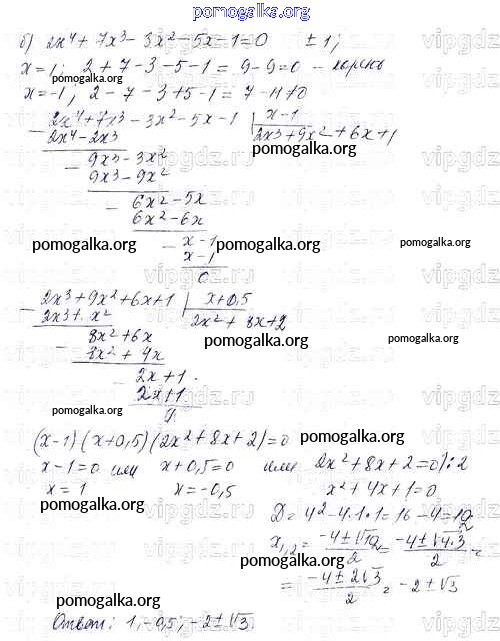 pomogalka.org
б) 2x⁴ + 7x³ - 3x² - 5x - 1 = 0 ± 1;
x = 1; 2 + 7 - 3 - 5 - 1 = 9 - 9 = 0 - корень
pomogalka.org
x = -1, 2 - 7 - 3 + 5 - 1 = 7 - 11 ≠ 0
- 2x⁴ + 7x³ - 3x² - 5x - 1 | x - 1
2x⁴ - 2x³ 2x³ + 9x² + 6x + 1
pomogalka.org
- 9x³ - 3x²
9x³ - 9x²
- 6x² - 5x
6x² - 6x
pomogalka.org pomogalka.org pomogalka.org
- x - 1
x - 1
0
- 2x³ + 9x² + 6x + 1 | x + 0,5
2x³ + x² 2x² + 8x + 2
- 8x² + 6x
8x² + 4x
pomogalka.org pomogalka.org
- 2x + 1
2x + 1
0
pomogalka.org
(x - 1) (x + 0,5) (2x² + 8x + 2) = 0 pomogalka.org
x - 1 = 0 или x + 0,5 = 0 или 2x² + 8x + 2 = 0 |: 2
x = 1 x = -0,5 x² + 4x + 1 = 0
pomogalka.org
D = 4² - 4·1·1 = 16 - 4 = 12
x₁,₂ = (-4 ± √12)/2 = (-4 ± √4·3)/2 =
= (-4 ± 2√3)/2 = -2 ± √3
pomogalka.org
Ответ: 1; -0,5; -2 ± √3
pomogalka.org
vipgdz.ru